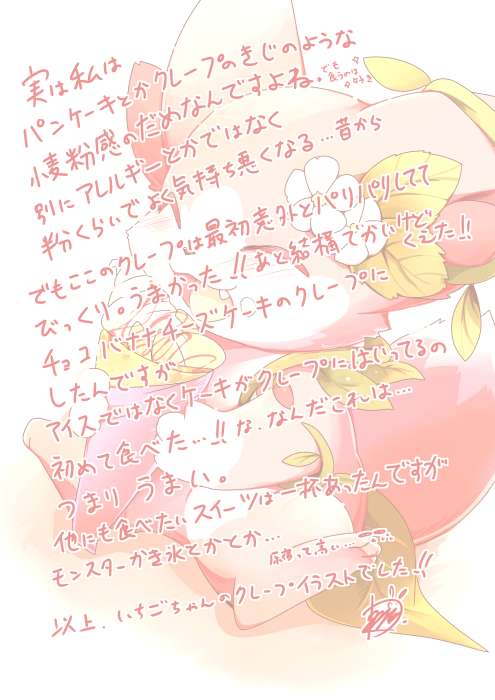 実は私は
パンケーキとかクレープのきじのような
小麦粉感のだめなんですよね.
でも
食うのは
好き
別にアレルギーとかではなく
半分くらいでよく気持ち悪くなる…昔から
でもここのクレープは最初意外とパリパリしてて
びっくり。うまかった!!あと結構でかいけどくえた!!
チョコバナナチーズケーキのクレープに
したんですが
アイスではなくケーキがクレープにはじってるの
初めて食べた…!!な、なんだこれは…
つまりうまい。
他にも食べたいスイーツは一杯あったんですが
モンスターかき氷とかとか…
原宿って高い……
以上、いちごちゃんのクレープイラストでした!!